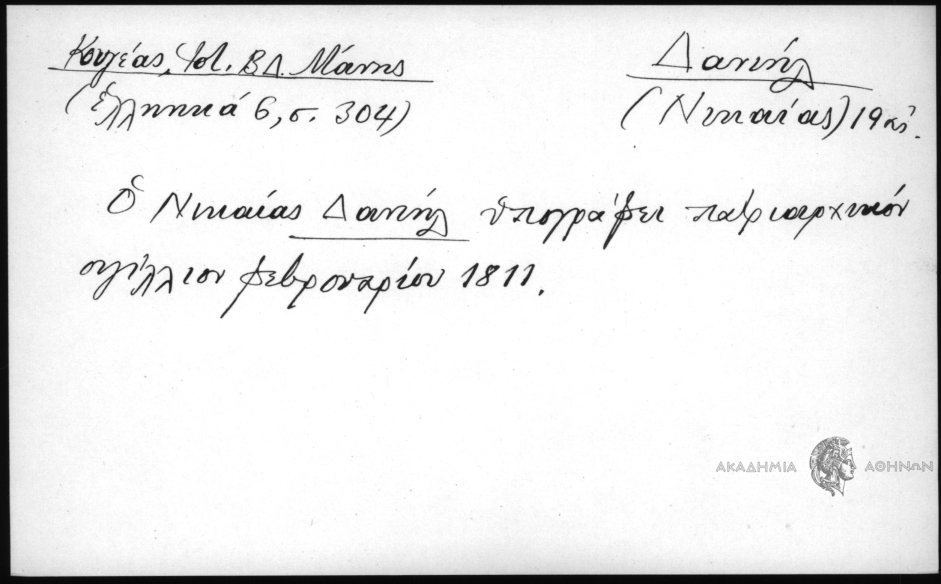 Κουγέας, Ἱστ. ΒΔ. Μάνης
(Ἑλληνικά 6, σ. 304)
Δανιήλ
(Νικαίας) 19 αἰ.
Ὁ Νικαίας Δανιήλ ὑπογράφει πατριαρχικόν
σιγίλλιον φεβρουαρίου 1811.
ΑΚΑΔΗΜΙΑ ΑΘΗΝΩΝ